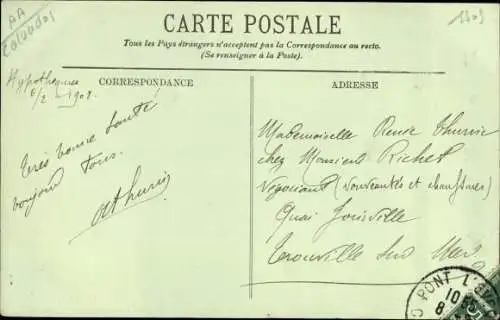 AA
Calvados
CARTE POSTALE
Tous les Pays étrangers n'acceptent pas la Correspondance au recto.
(Se renseigner à la Poste).
CORRESPONDANCE
6/2 - 1908.
Très bonne santé
bonjour Tous.
ADRESSE
Mademoiselle Thurin
chez Monsieur Richet
Négociant (Nouveautés et chaussures)
Quai Joinville
Trouville sur Mer
PONT L'
10
8